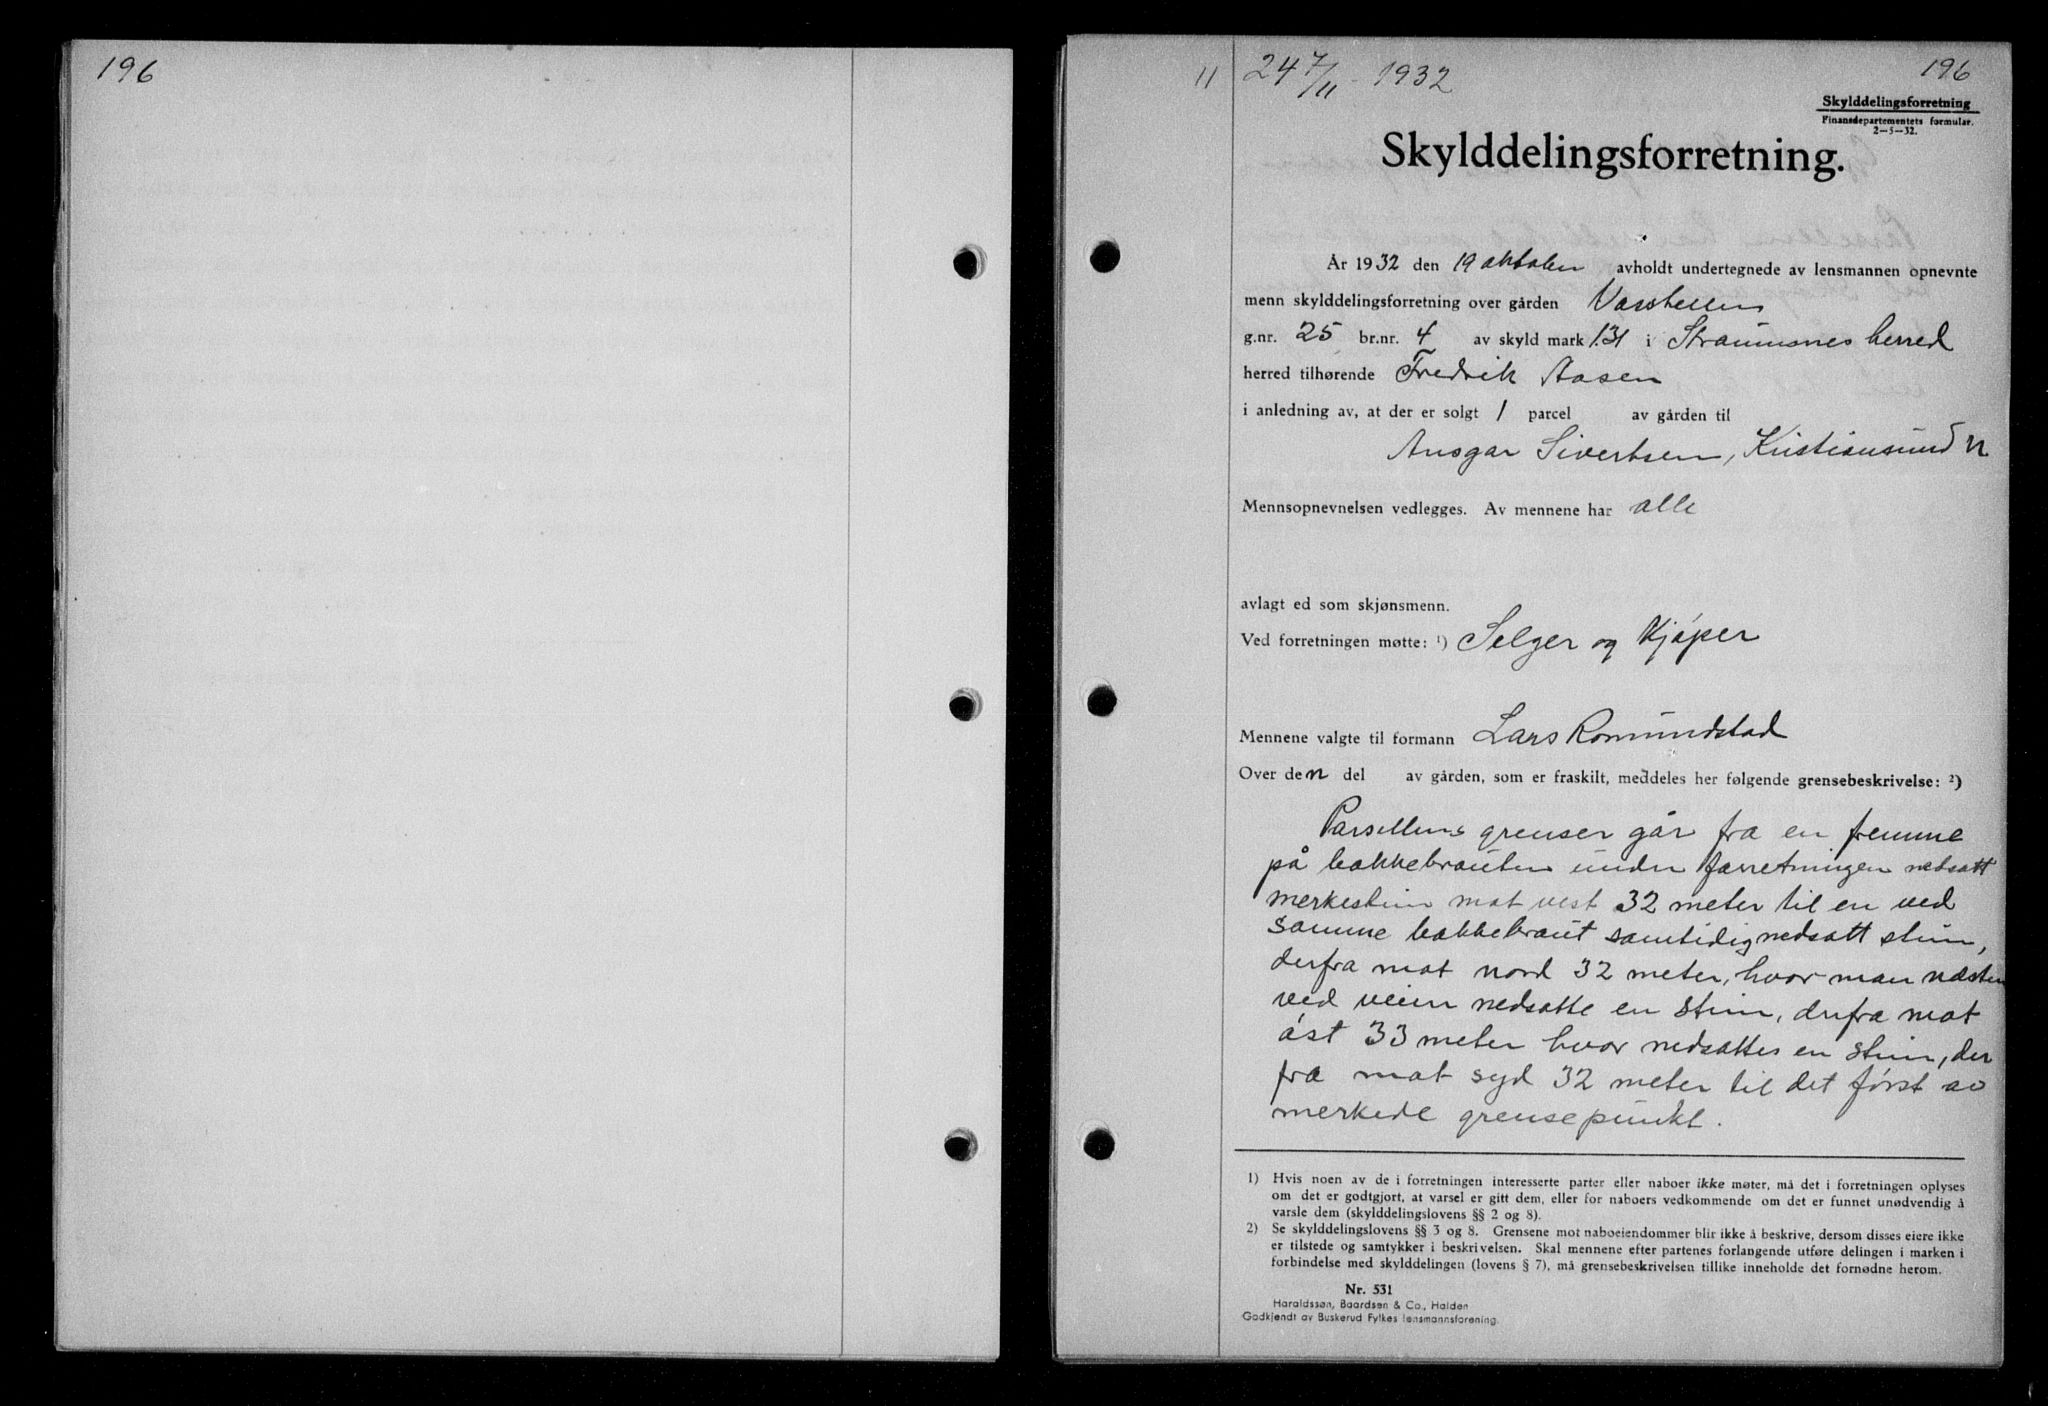 196
11 24 7/11 1932 196
Skylddelingsforretning
Finansdepartementets formular.
2—5—32.
Skylddelingsforretning.
År 1932 den 19 oktober avholdt undertegnede av lensmannen opnevnte
menn skylddelingsforretning over gården
g.nr. 25 br.nr. 4 av skyld mark 1.31 i Straumsnes herred
herred tilhørende Fredrik Aasen
i anledning av, at der er solgt 1 parcel av gården til
Ansgar Sivertsen, Kristiansund N
Mennsopnevnelsen vedlegges. Av mennene har alle
avlagt ed som skjønsmenn.
Ved forretningen møtte: 1) Selger og Kjøper
Mennene valgte til formann Lars Romundstad
Over den del av gården, som er fraskilt, meddeles her følgende grensebeskrivelse: 2)
Parsellens grenser går fra en fremme
på bakkebrauten under forretningen nedsatt
merkestein mot vest 32 meter til en ved
samme bakkebraut samtidig nedsatt stein,
derfra mot nord 32 meter, hvor man næsten
ved veien nedsatte en stein, derfra mot
øst 33 meter hvor nedsattes en stein, der
fra mot syd 32 meter til det først av
merkede grensepunkt.
1) Hvis noen av de i forretningen interesserte parter eller naboer ikke møter, må det i forretningen oplyses
om det er godtgjort, at varsel er gitt dem, eller for naboers vedkommende om det er funnet unødvendig å
varsle dem (skylddelingslovens §§ 2 og 8).
2) Se skylddelingslovens §§ 3 og 8. Grensene mot naboeiendommer blir ikke å beskrive, dersom disses eiere ikke
er tilstede og samtykker i beskrivelsen. Skal mennene efter partenes forlangende utføre delingen i marken i
forbindelse med skylddelingen (lovens § 7), må grensebeskrivelsen tillike inneholde det fornødne herom.
Nr. 531
Haraldssøn, Baardsen & Co., Halden
Godkjendt av Buskerud Fylkes lensmannsforening.